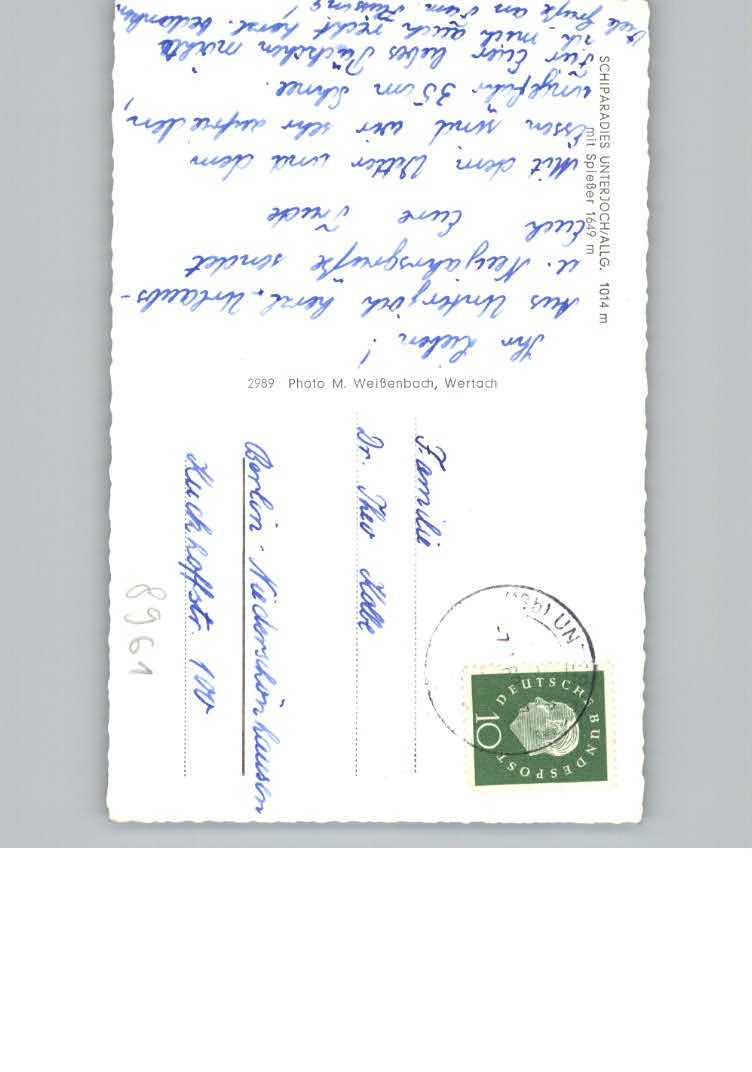 SCHIPARADIES UNTERJOCH/ALLG. 1014 m
mit Spießer 1649 m
Ihr Lieben!
Aus Unterjoch herzl. Urlaubs-
u. Neujahrsgrüße sendet
Euch Eure Trude
Mit dem Wetter und dem
Essen sind wir sehr zufrieden,
ungefähr 35 cm Schnee.
Für Euer liebes Päckchen möchte
ich mich auch recht herzl. bedanken
Viele Grüße an
2989 Photo M. Weißenbach, Wertach
Familie
Dr. Theo Kolbe
Berlin-Niederschönhausen
Kuckhoffstr. 100
8961
DEUTSCHE BUNDESPOST
10